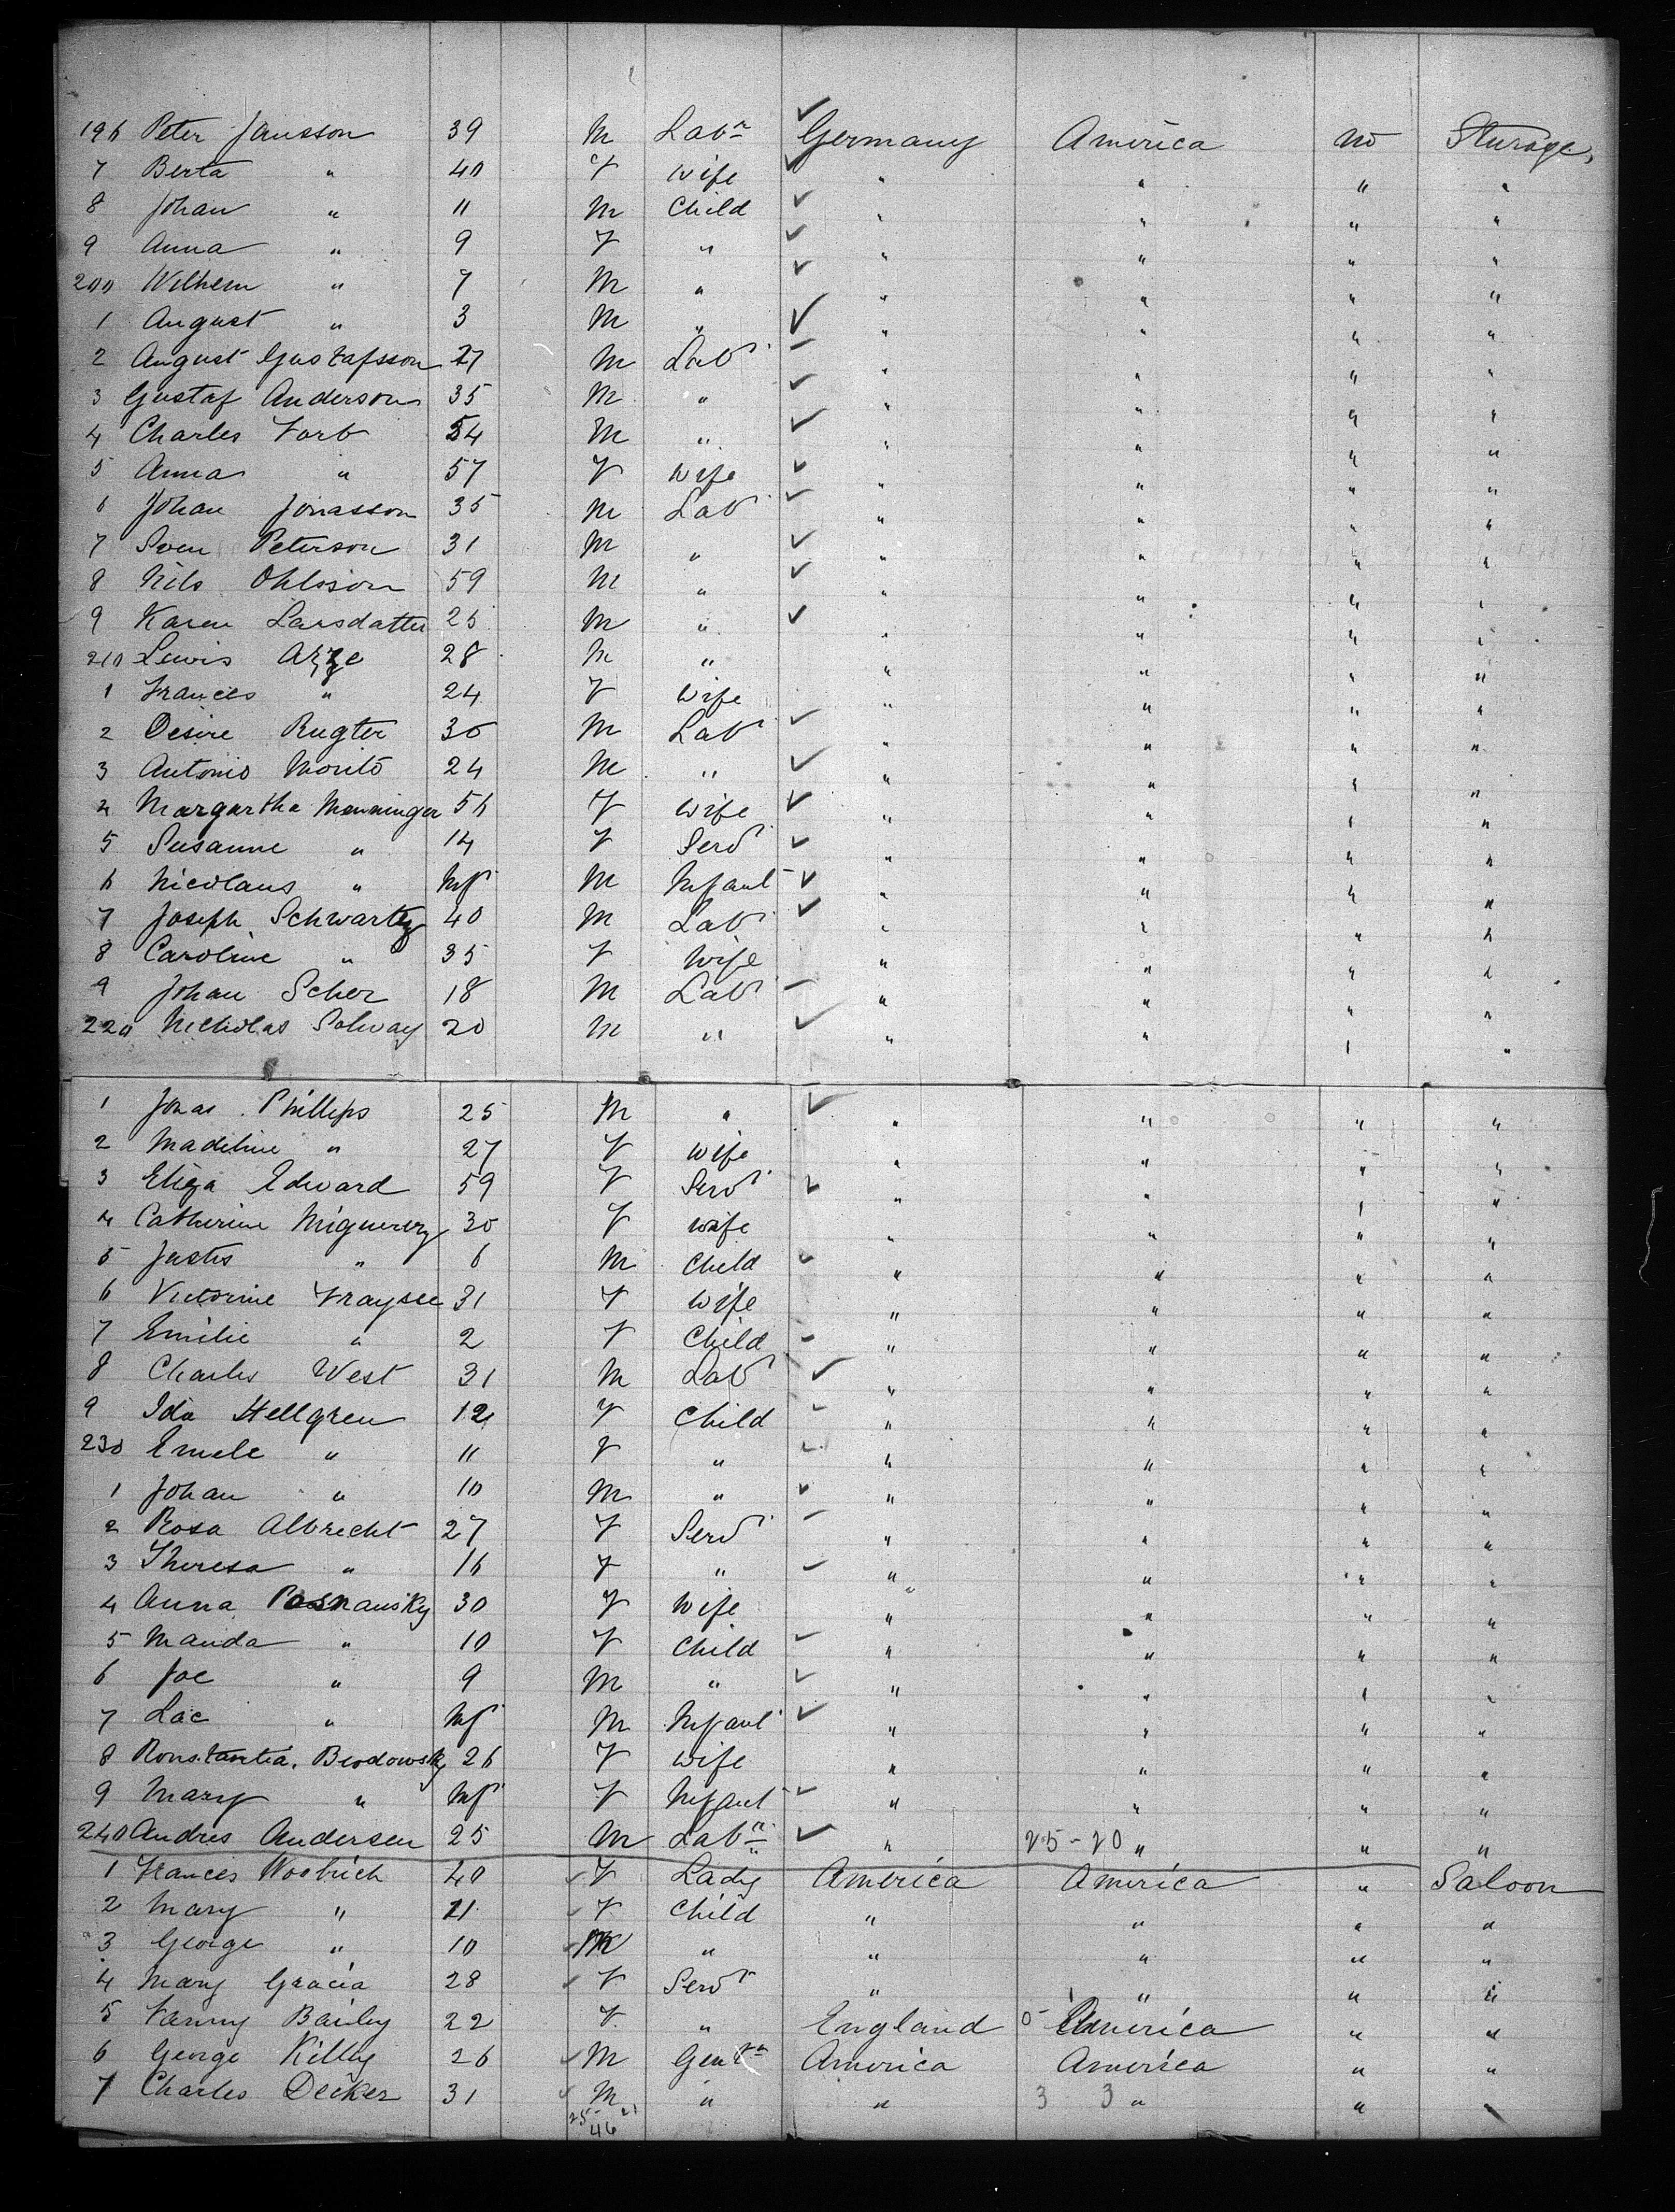 196 Peter Jansson 39 M Labr Germany America no Sturage,
7 Berta " 40 F wife " " " "
8 Johan " 11 M Child " " " "
9 Anna " 9 F " " " " "
200 Wilhem " 7 M " " " " "
1 August " 3 M " " " " "
2 August Gustafsson 27 M Labr " " " "
3 Gustaf Anderson 35 M " " " " "
4 Charles Forb 54 M " " " " "
5 Anna " 57 F wife " " " "
6 Johan Jonasson 35 M Labr " " " "
7 Sven Peterson 31 M " " " " "
8 Nils Ohlsson 59 M " " " " "
9 Karen Larsdatter 25 M " " " " "
210 Lewis 28 M " " " " "
1 Frances " 24 F wife " " " "
2 Desire Rugter 30 M Labr " " " "
3 Antonio Morito 24 M " " " " "
4 Margartha Menninger 56 F wife " " " "
5 Susanne " 14 F Servt " " " "
6 Nicolaus " Inft M Infant " " " "
7 Joseph Schwartz 40 M Labr " " " "
8 Caroline " 35 F Wife " " " "
9 Johan Scher 18 M Labr " " " "
220 Nicholas Solway 20 M " " " " "
1 Jonas Phillips 25 M " " " " "
2 Madeline " 27 F wife " " " "
3 Eliza Edward 59 F Servt " " " "
4 Catherine 30 F wife " " " "
5 Justes " 6 M Child " " " "
6 Victorine Fraysee 31 F Wife " " " "
7 Emilie " 2 F Child " " " "
8 Charles West 31 M Labr " " " "
9 Ida Hellgren 12 F Child " " " "
230 Emele " 11 F " " " " "
1 Johan " 10 M " " " " "
2 Rosa Albrecht 27 F Servt " " " "
3 Theresa " 16 F " " " " "
4 Anna Posnansky 30 F Wife " " " "
5 Manda " 10 F Child " " " "
6 Joe " 9 M " " " " "
7 Lac " Inft M Infant " " " "
8 Konstantia. Brodowsky 26 F Wife " " " "
9 Mary " Inft F Infant " " " "
240 Andres Andersen 25 M Labr " 25-20 " " "
1 Frances Woobrich 40 F Lady America America " Saloon
2 Mary " 11 F Child " " " "
3 George " 10 M " " " " "
4 Mary Gracia 28 F Servt " " " "
5 Fanny Bailey 22 F " England 0- America " "
6 George Kilby 26 M Gentn America America " "
7 Charles Decker 31 M " " 3 3 " " "
25 21
46